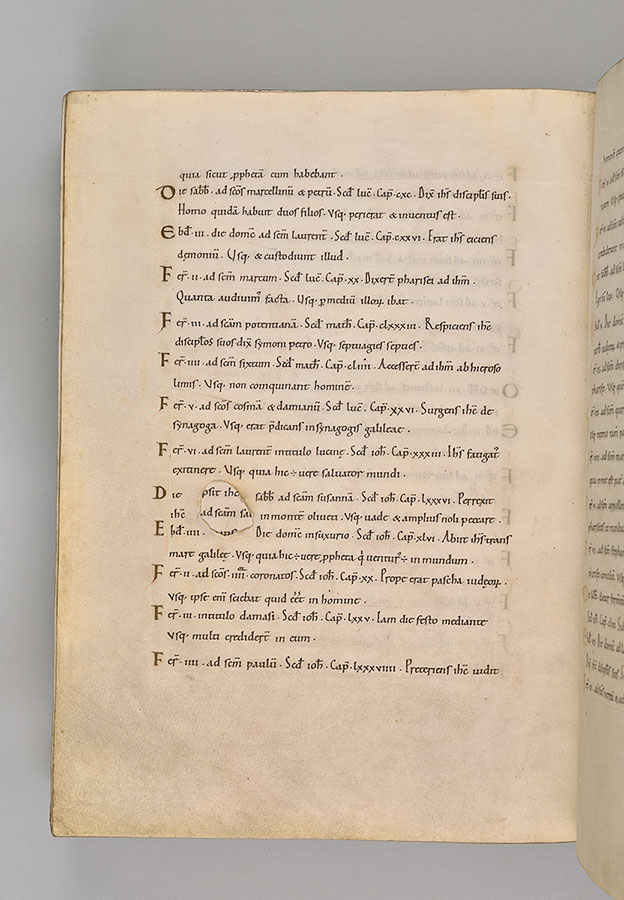 quia sicut ꝓphetā eum habebant.
Die sabb̄. ad sc̄os marcellinū & petrū. Scd̄ luc̄. Cap̄. cxc. Dix̄ ihs̄ discipl̄is suis.
Homo quidā habuit duos filios. Vsq; perierat & inuentus est.
Ebd̄. iii. die domc̄ ad sc̄m laurent̄. Scd̄ luc̄. Cap̄. cxxvi. Erat ihs̄ eiciens
demoniū. Vsq; & custodiunt illud.
Fer̄. ii. ad sc̄m marcum. Scd̄ luc̄. Cap̄. xx. Dixer̄t pharisei ad ihm̄.
Quanta audiuim᾽ facta. Vsq; ꝑ mediū illoꝝ ibat.
Fer̄. iii. ad sc̄am potentianā. Scd̄ math̄. Cap̄. clxxxiii. Respiciens ihc̄
discipl̄os suos dix̄ symoni petro. Vsq; septuagies septies.
Fer̄. iiii. ad sc̄m sixtum. Scd̄ math̄. Cap̄. cliiii. Accesser̄t ad ihm̄ ab hieroso
limis. Vsq; non coinquinant hominē.
Fer̄. v. ad sc̄os cosmā & damianū. Scd̄ luc̄. Cap̄. xxvi. Surgens ihc̄ de
synagoga. Vsq; erat p̄dicans in synagogis galileae.
Fer̄. vi. ad sc̄m laurent̄ in titulo lucinę. Scd̄ ioh̄. Cap̄. xxxiii. Ihs̄ fatigat᾽
ex itinere. Vsq; quia hic ÷ uere saluator mundi.
Die psit ihc̄ sabb̄ ad sc̄am susannā. Scd̄ ioh̄. Cap̄. lxxxvi. Perrexit
ihc̄ ad sc̄am in monte oliueti. Vsq; uade & amplius noli peccare.
Ebd̄. iiii. Die domc̄ in sussurio. Scd̄ ioh̄. Cap̄. xlvi. Abiit ihs̄ trans
mare galileę. Vsq; quia hic ÷ uere ꝓpheta q̄ uentur᾽ ÷ in mundum.
Fer̄. ii. ad sc̄os. iiii. coronatos. Scd̄ ioh̄. Cap̄. xx. Prope erat pascha iudęoꝝ.
Vsq; ipse enī sciebat quid eēt in homine.
Fer̄. iii. in titulo damasi. Scd̄ ioh̄. Cap̄. lxxv. Iam die festo mediante
Vsq; multi credider̄t in eum.
Fer̄. iiii. ad sc̄m paulū. Scd̄ ioh̄. Cap̄. lxxxviiii. Preteriens ihc̄ uidit